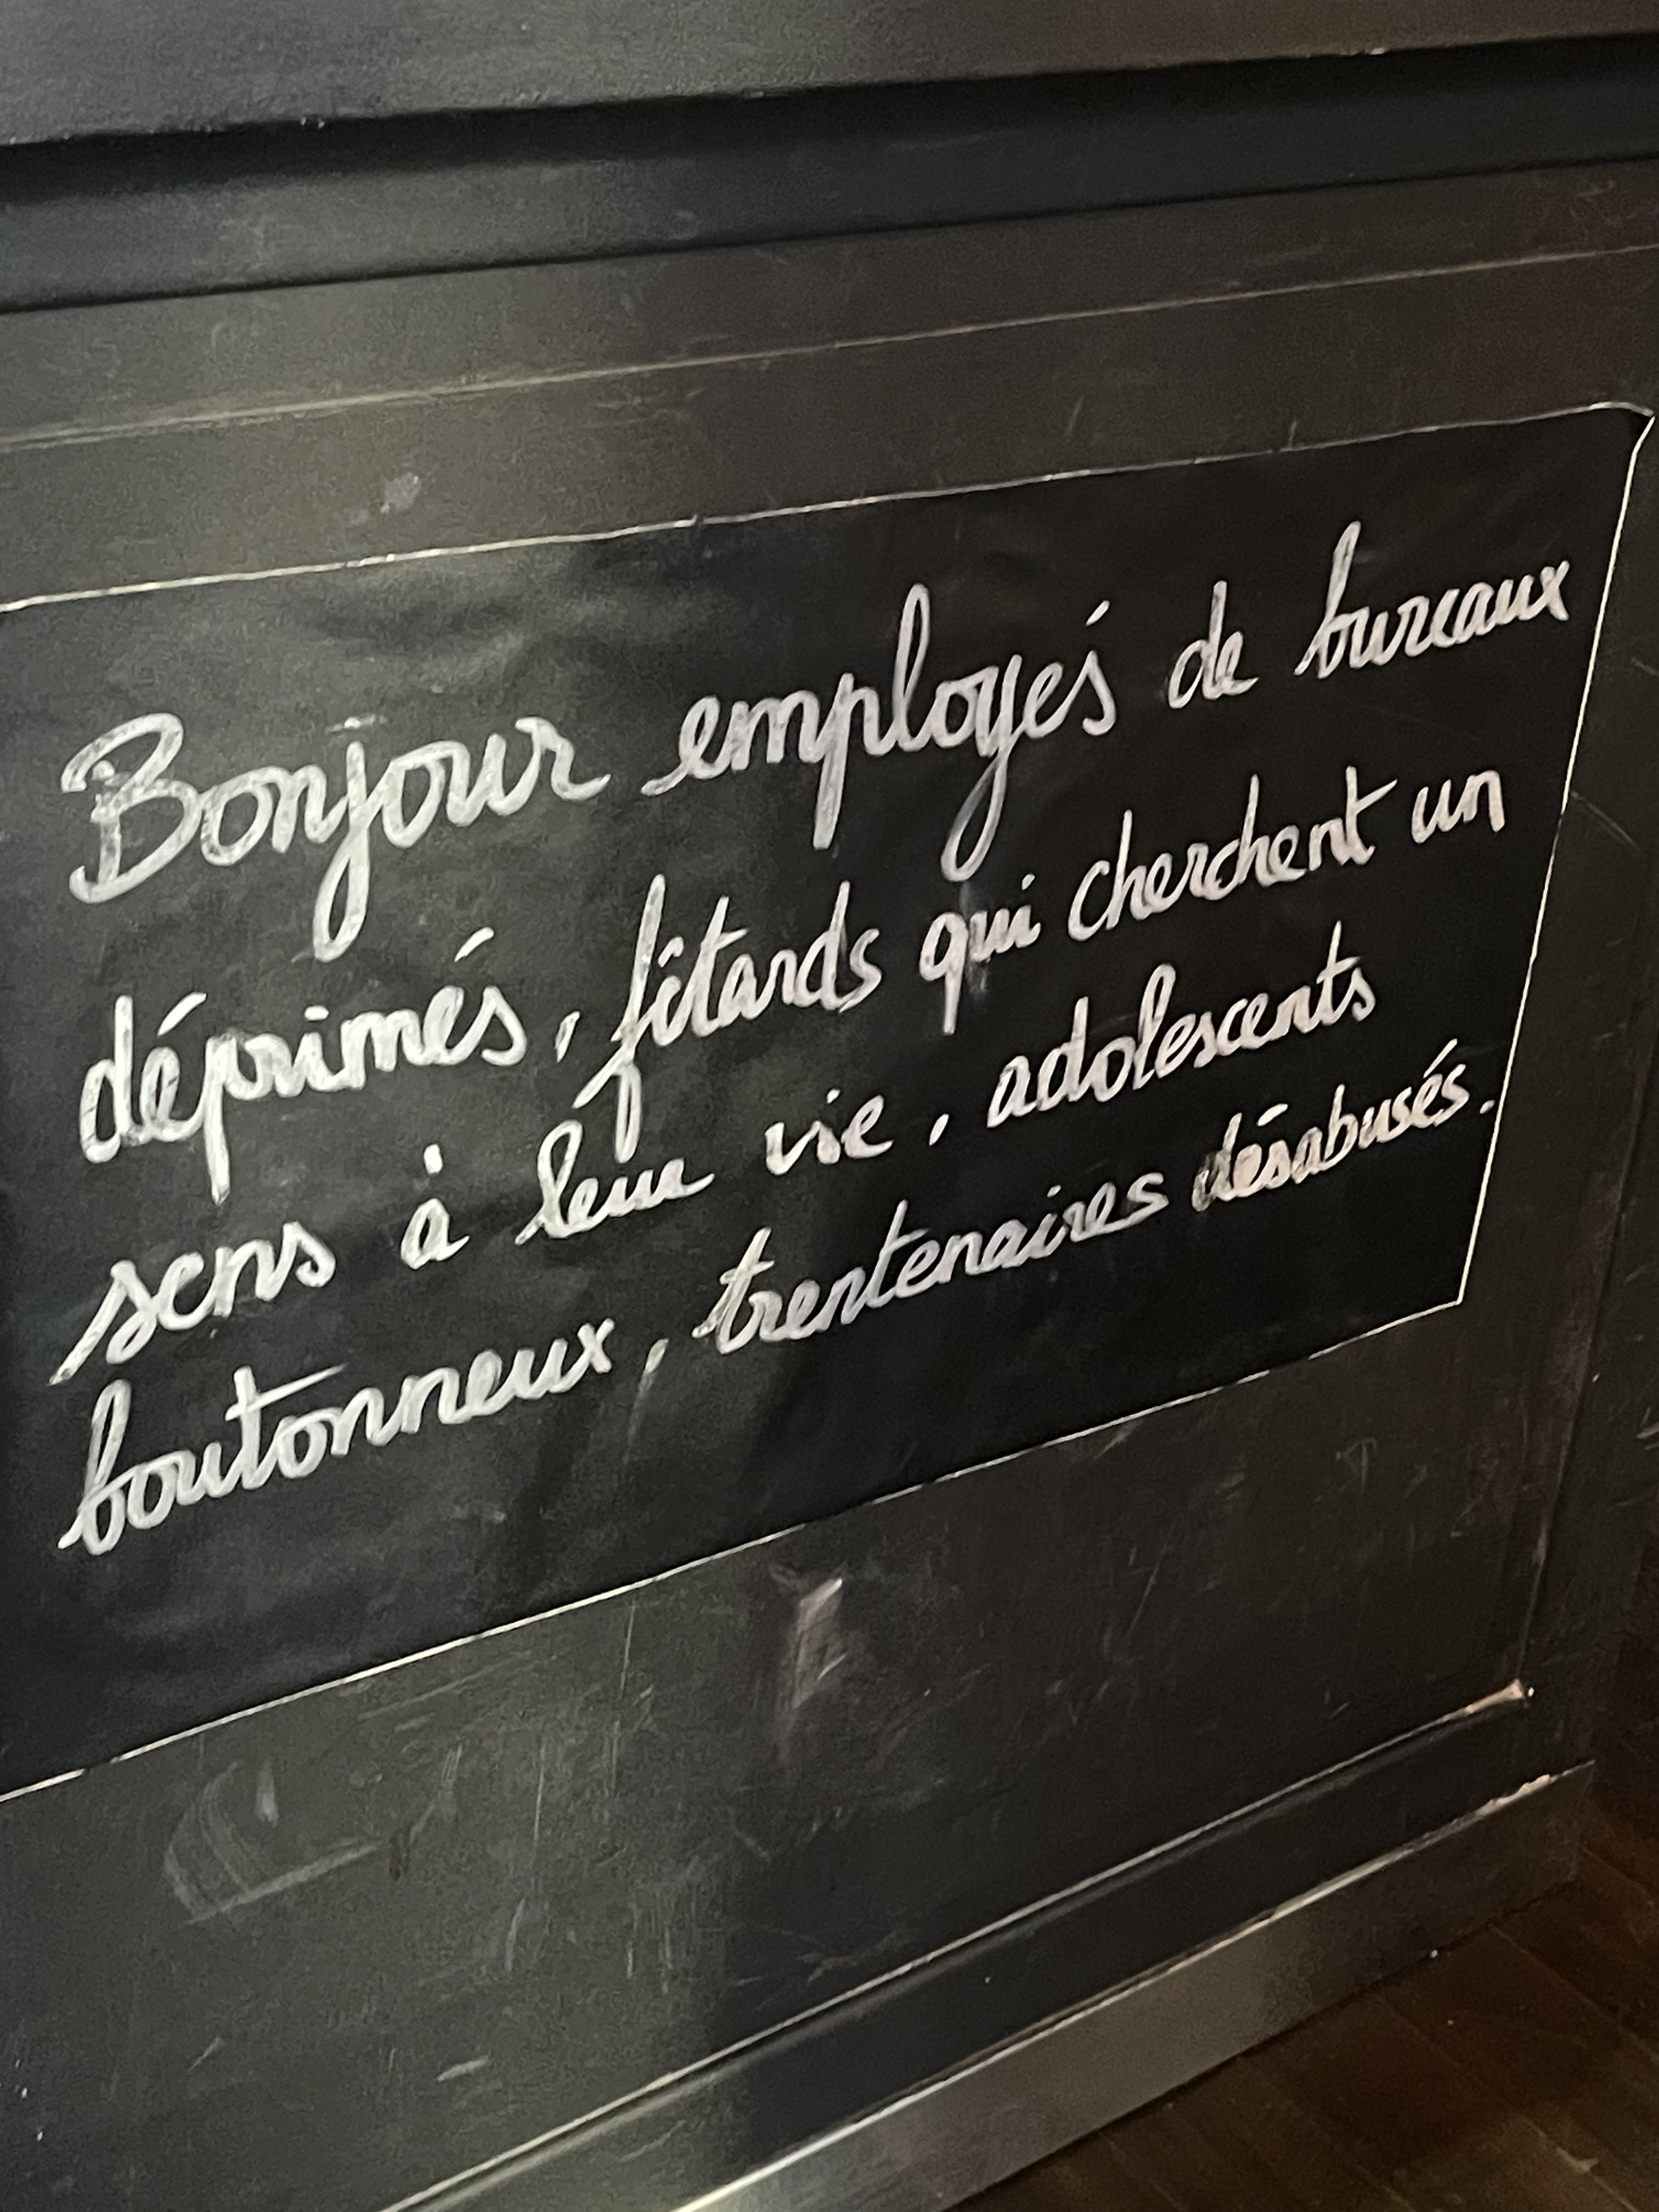 Bonjour employés de bureaux
déprimés, fêtards qui cherchent un
sens à leur vie, adolescents
boutonneux, trentenaires désabusés.